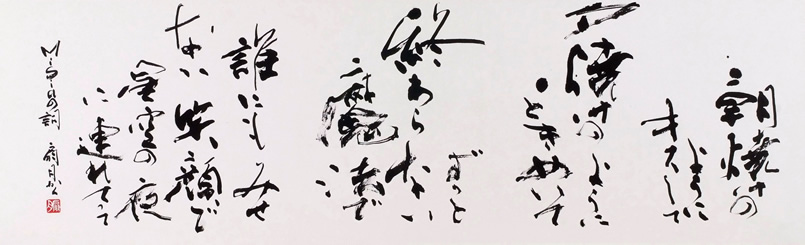 朝焼けの
ように
キスして
夕焼けのように
ときめいて
ずっと
終わらない
魔法で
誰にもみせ
ない笑顔で
星空の夜
に連れてって
の詞